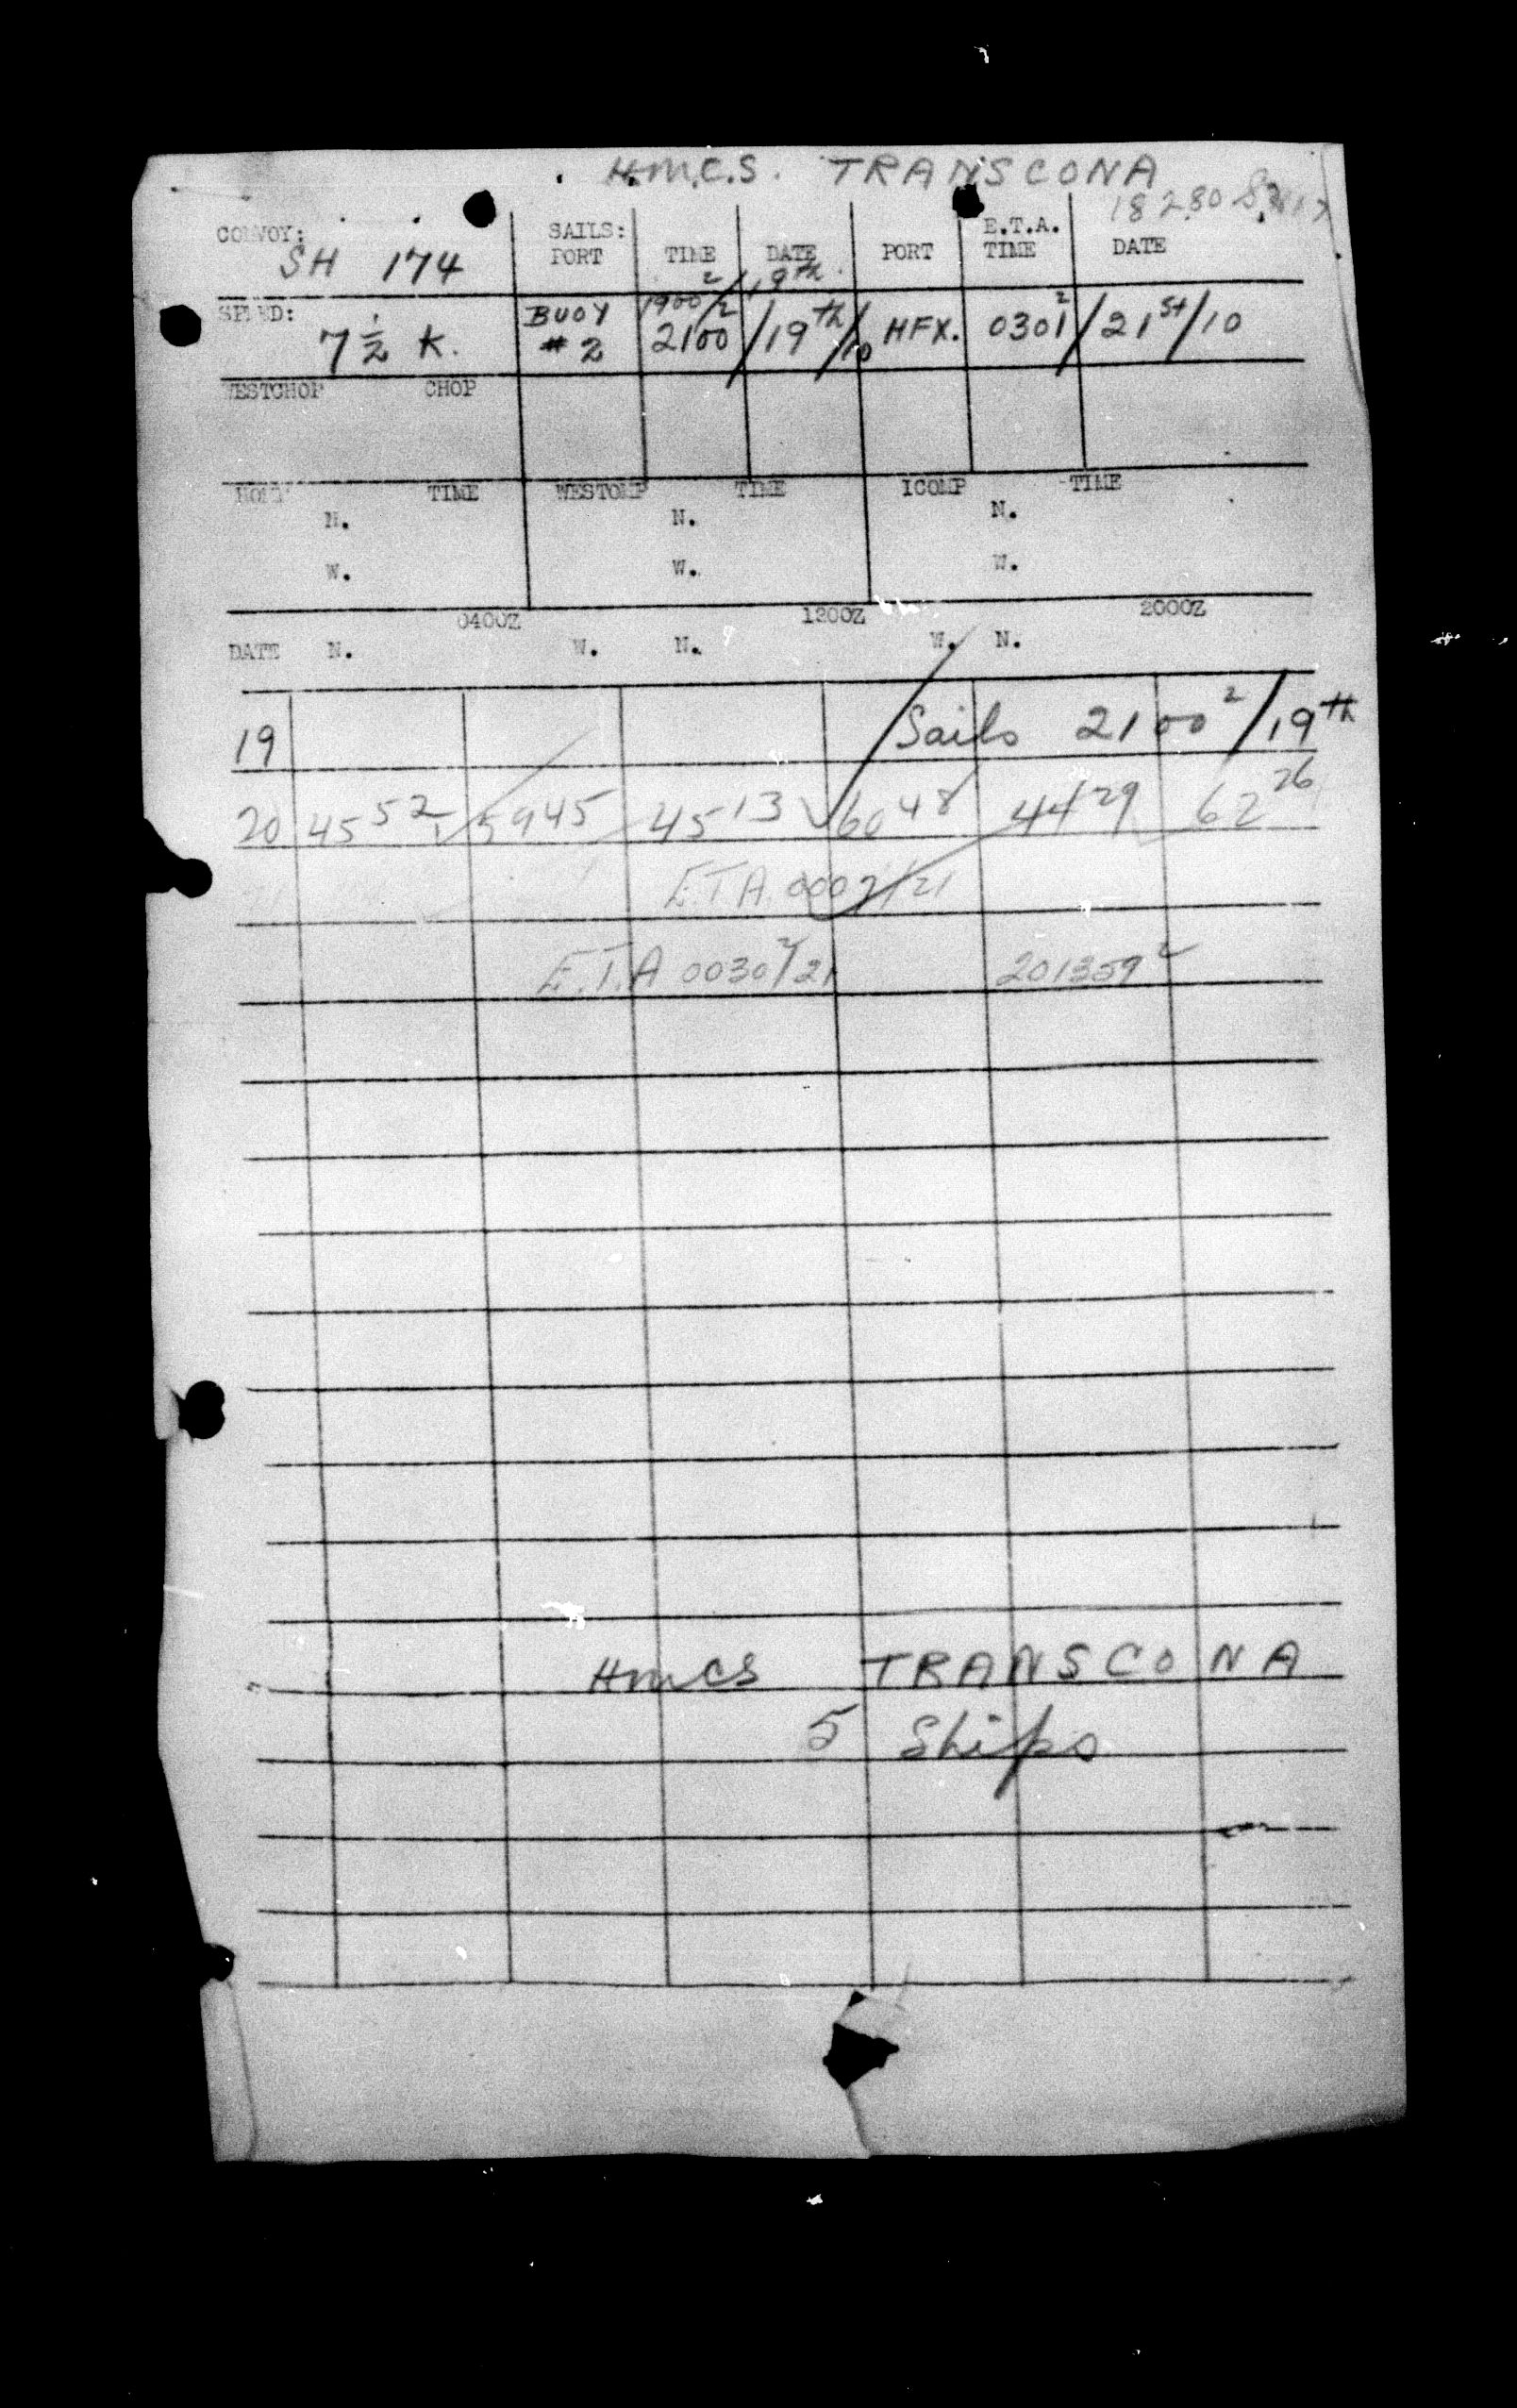 H.M.C.S. TRANSCONA
CONVOY: SAILS: E.T.A.
SH 174 PORT TIME DATE PORT TIME DATE
1900Z/19th
SPEED: BUOY
7 1/2 K. # 2 2100Z/19th/10 HFX. 0301Z/21st/10
WESTCHOP CHOP
TIME WESTOMP TIME ICOMP TIME
N. N. N.
W. W. W.
0400Z 1200Z 2000Z
DATE N. W. N. W. N.
19 Sails 2100Z/19th
20 45 52 59 45 45 13 60 48 44 29 62 26
E.T.A. 000 /21
E.T.A 0030Z/21 201359Z
HMCS TRANSCONA
5 Ships